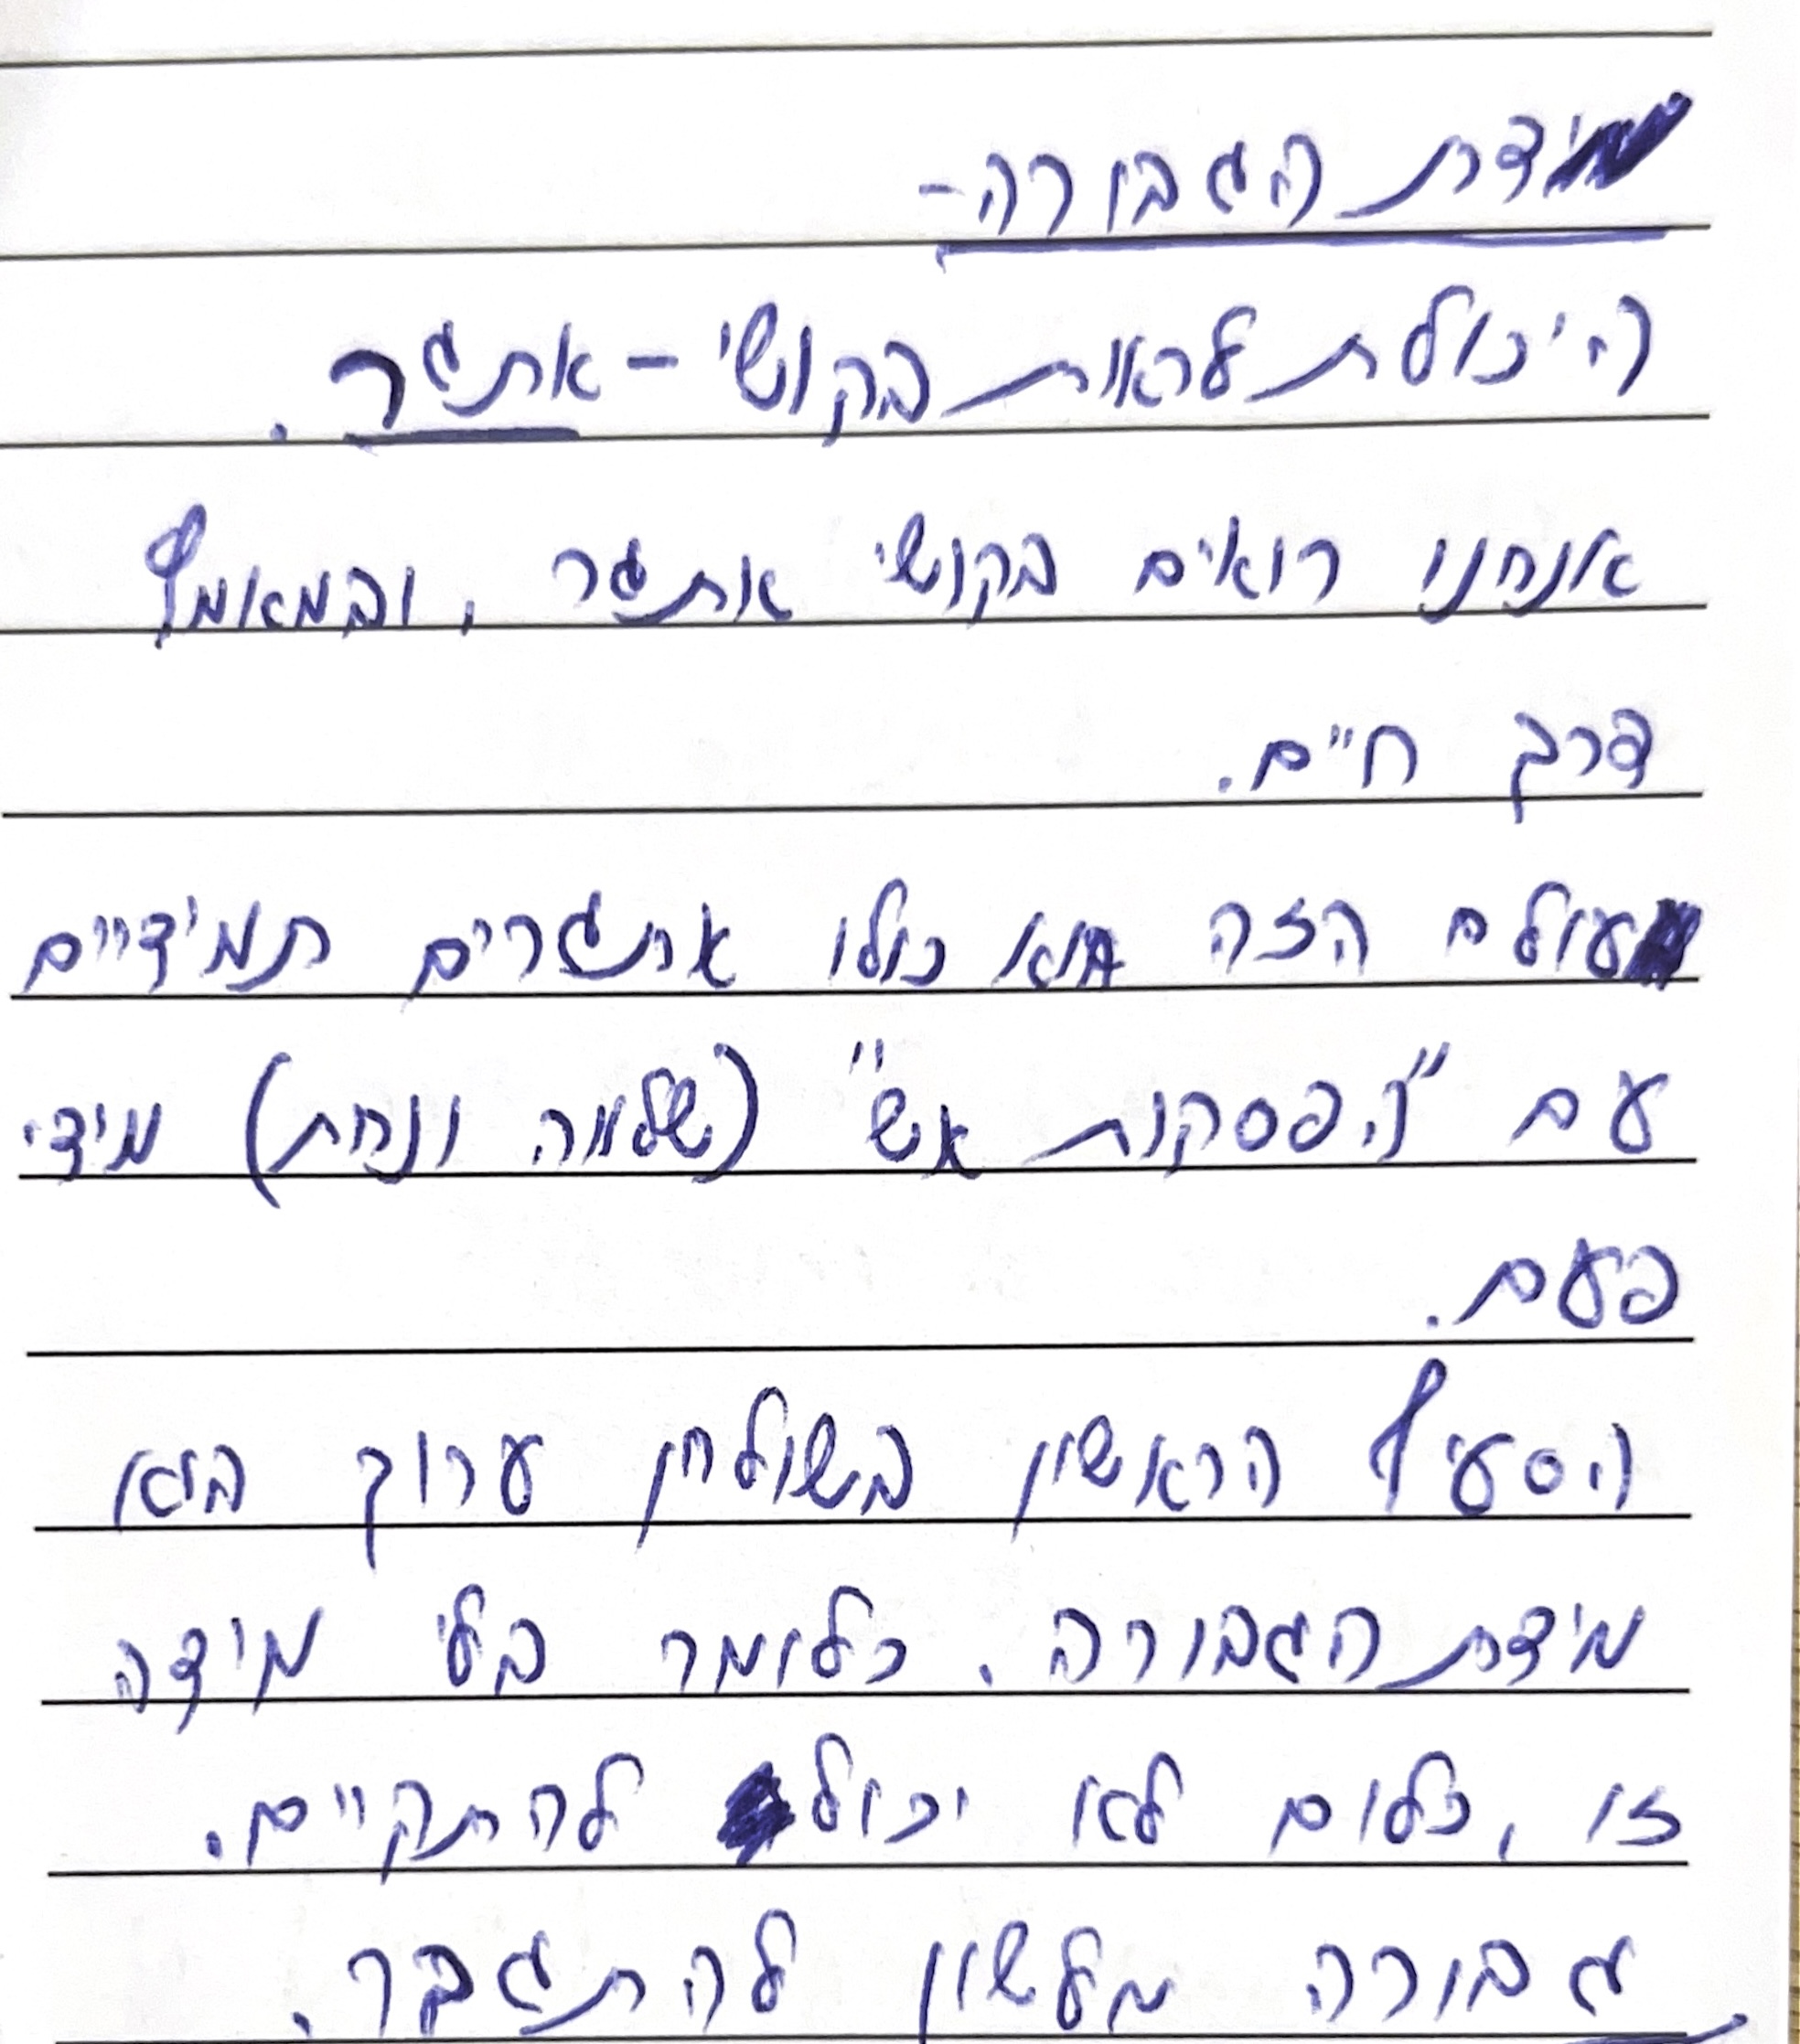 מידת הגבורה-
היכולת לראות בקושי - אתגר.
אנחנו רואים בקושי אתגר, ובמאמץ
דרך חיים.
עולם הזה הוא כולו אתגרים תמידיים
עם "הפסקות אש" (שלווה ונחת) מידי
פעם.
הסעיף הראשון בשולחן ערוך הוא
מידת הגבורה. כלומר בלי מידה
זו, כלום לא יכול להתקיים.
גבורה מלשון להתגבר.